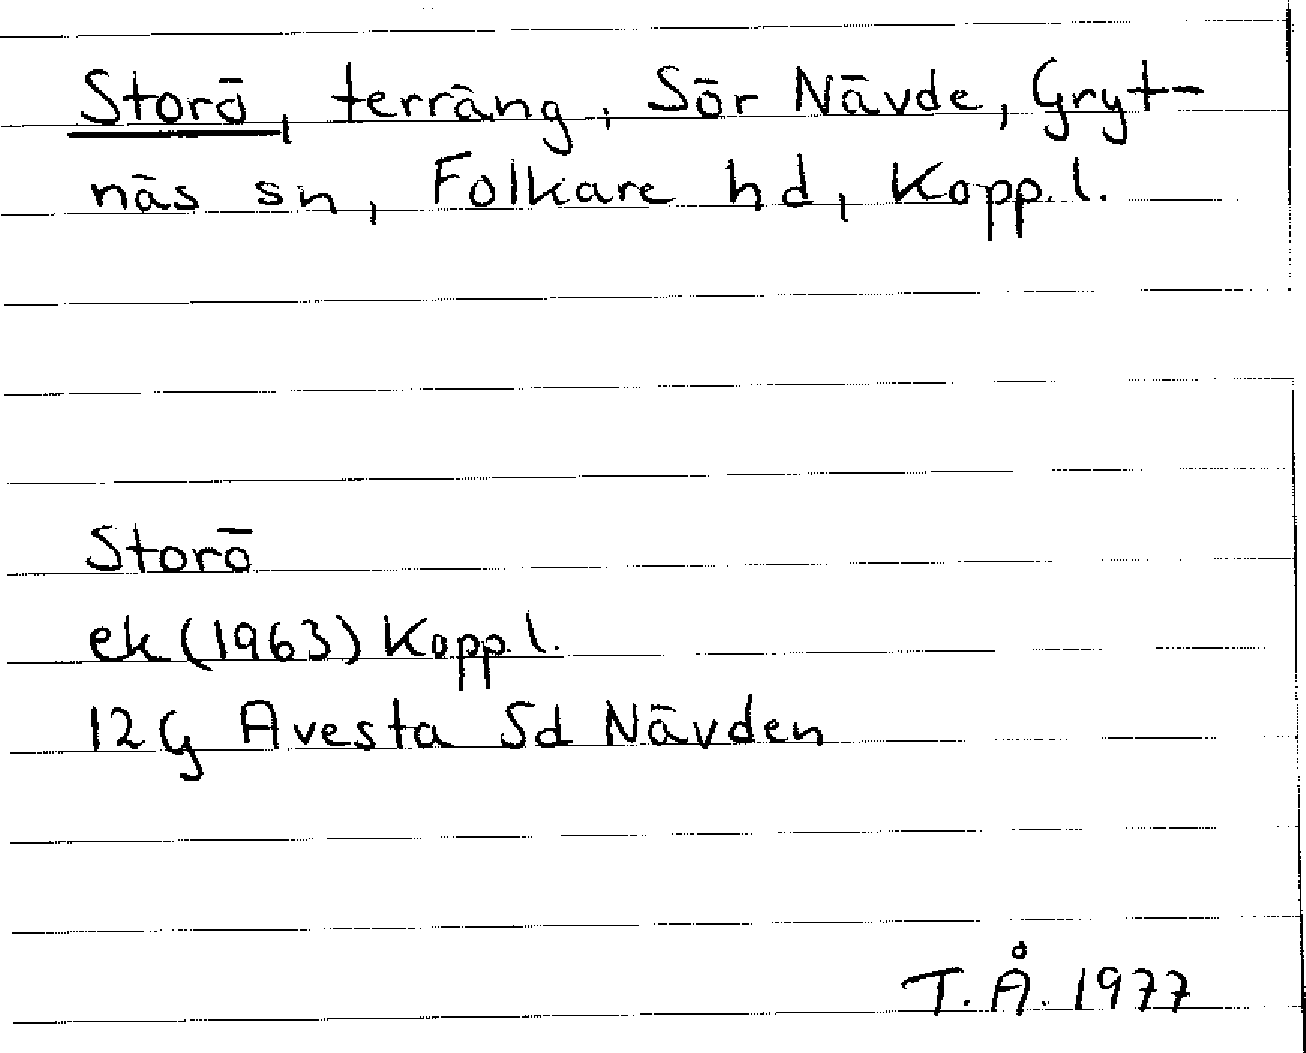 Storö, terräng, Sör Nävde, Gryt-
näs sn, Folkare hd, Kopp.l.
Storö
ek (1963) Kopp.l.
12G Avesta Sd Nävden
T.Å. 1977